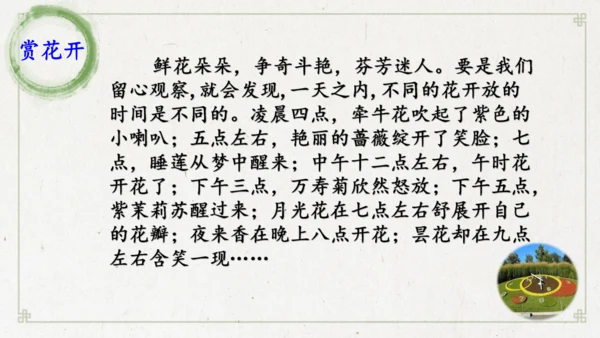 赏花开
鲜花朵朵，争奇斗艳，芬芳迷人。要是我们
留心观察,就会发现,一天之内,不同的花开放的
时间是不同的。凌晨四点，牵牛花吹起了紫色的
小喇叭；五点左右，艳丽的蔷薇绽开了笑脸；七
点，睡莲从梦中醒来；中午十二点左右，午时花
开花了；下午三点，万寿菊欣然怒放；下午五点，
紫茉莉苏醒过来；月光花在七点左右舒展开自己
的花瓣；夜来香在晚上八点开花；昙花却在九点
左右含笑一现……